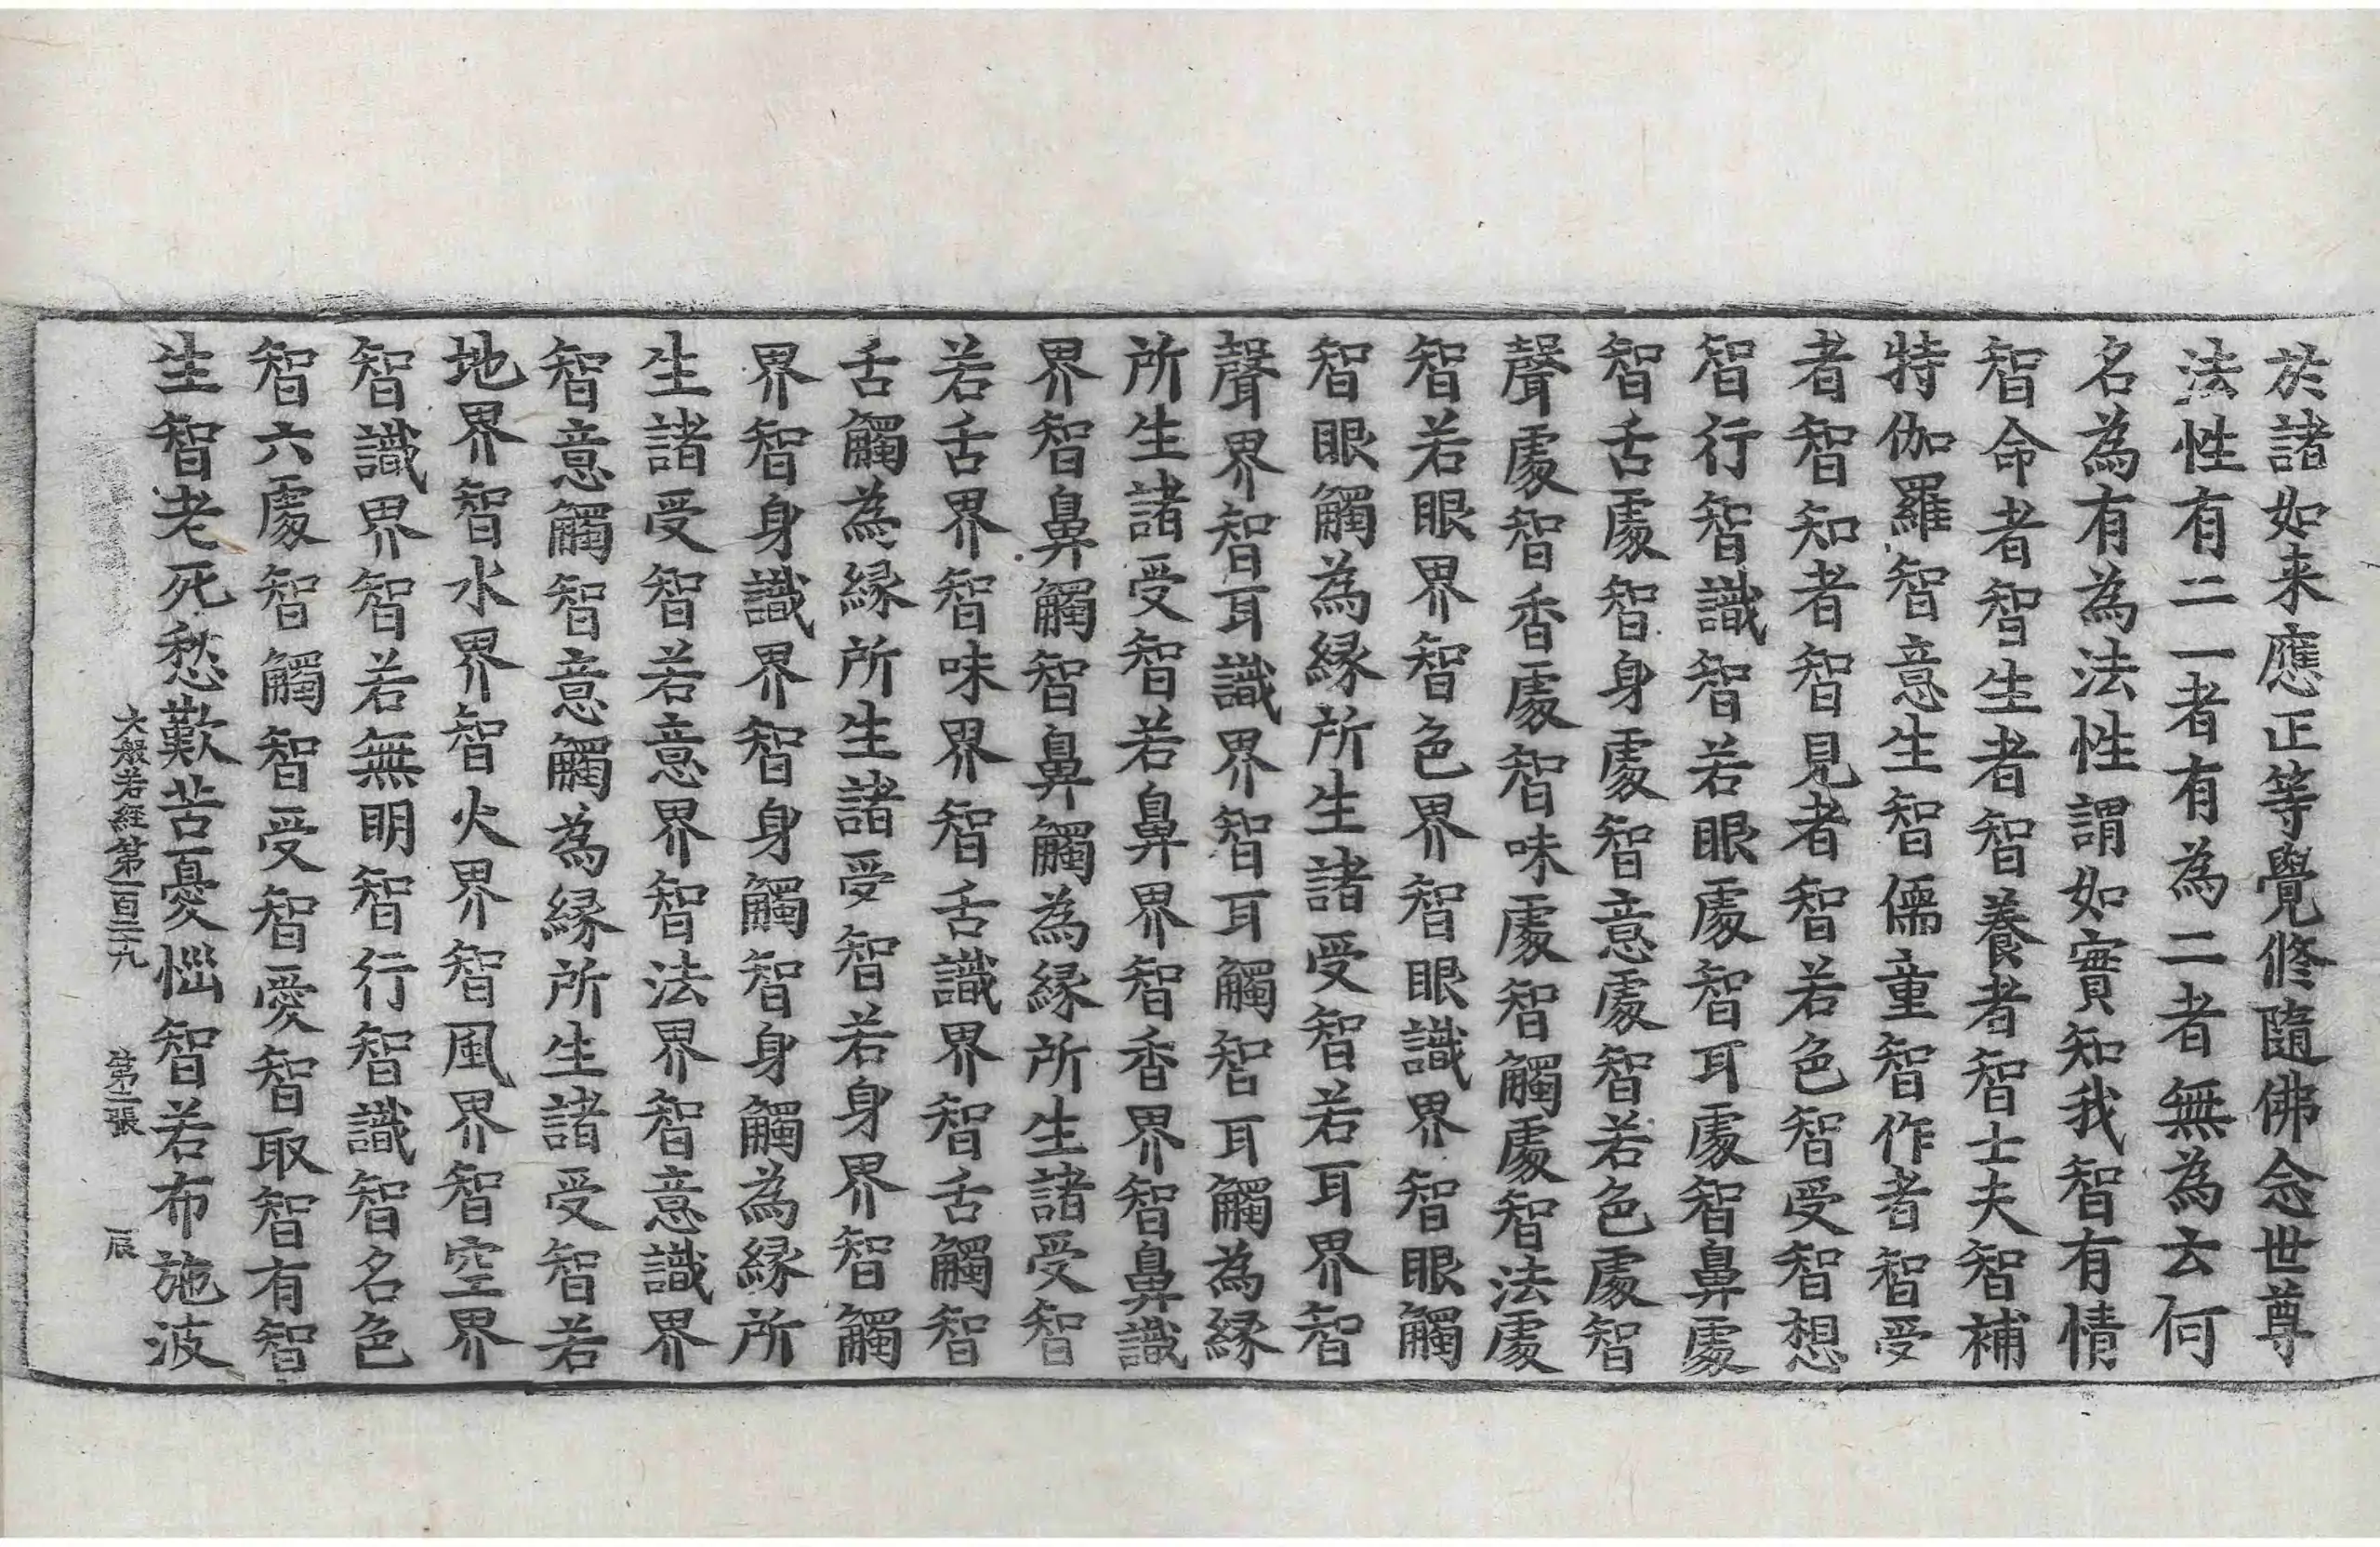 於諸如来應正等覺修隨佛念世尊
法性有二一者有為二者無為云何
名為有為法性謂如實知我智有情
智命者智生者智養者智士夫智補
特伽羅智意生智儒童智作者智受
者智知者智見者智若色智受智想
智行智識智若眼處智耳處智鼻處
智舌處智身處智意處智若色處智
聲處智香處智味處智觸處智法處
智若眼界智色界智眼識界智眼觸
智眼觸為縁所生諸受智若耳界智
聲界智耳識界智耳觸智耳觸為縁
所生諸受智若鼻界智香界智鼻識
界智鼻觸智鼻觸為縁所生諸受智
若舌界智味界智舌識界智舌觸智
舌觸為縁所生諸受智若身界智觸
界智身識界智身觸智身觸為縁所
生諸受智若意界智法界智意識界
智意觸智意觸為縁所生諸受智若
地界智水界智火界智風界智空界
智識界智若無明智行智識智名色
智六處智觸智受智愛智取智有智
生智老死愁歎苦憂惱智若布施波
大般若經第一百二十九 第二張 辰